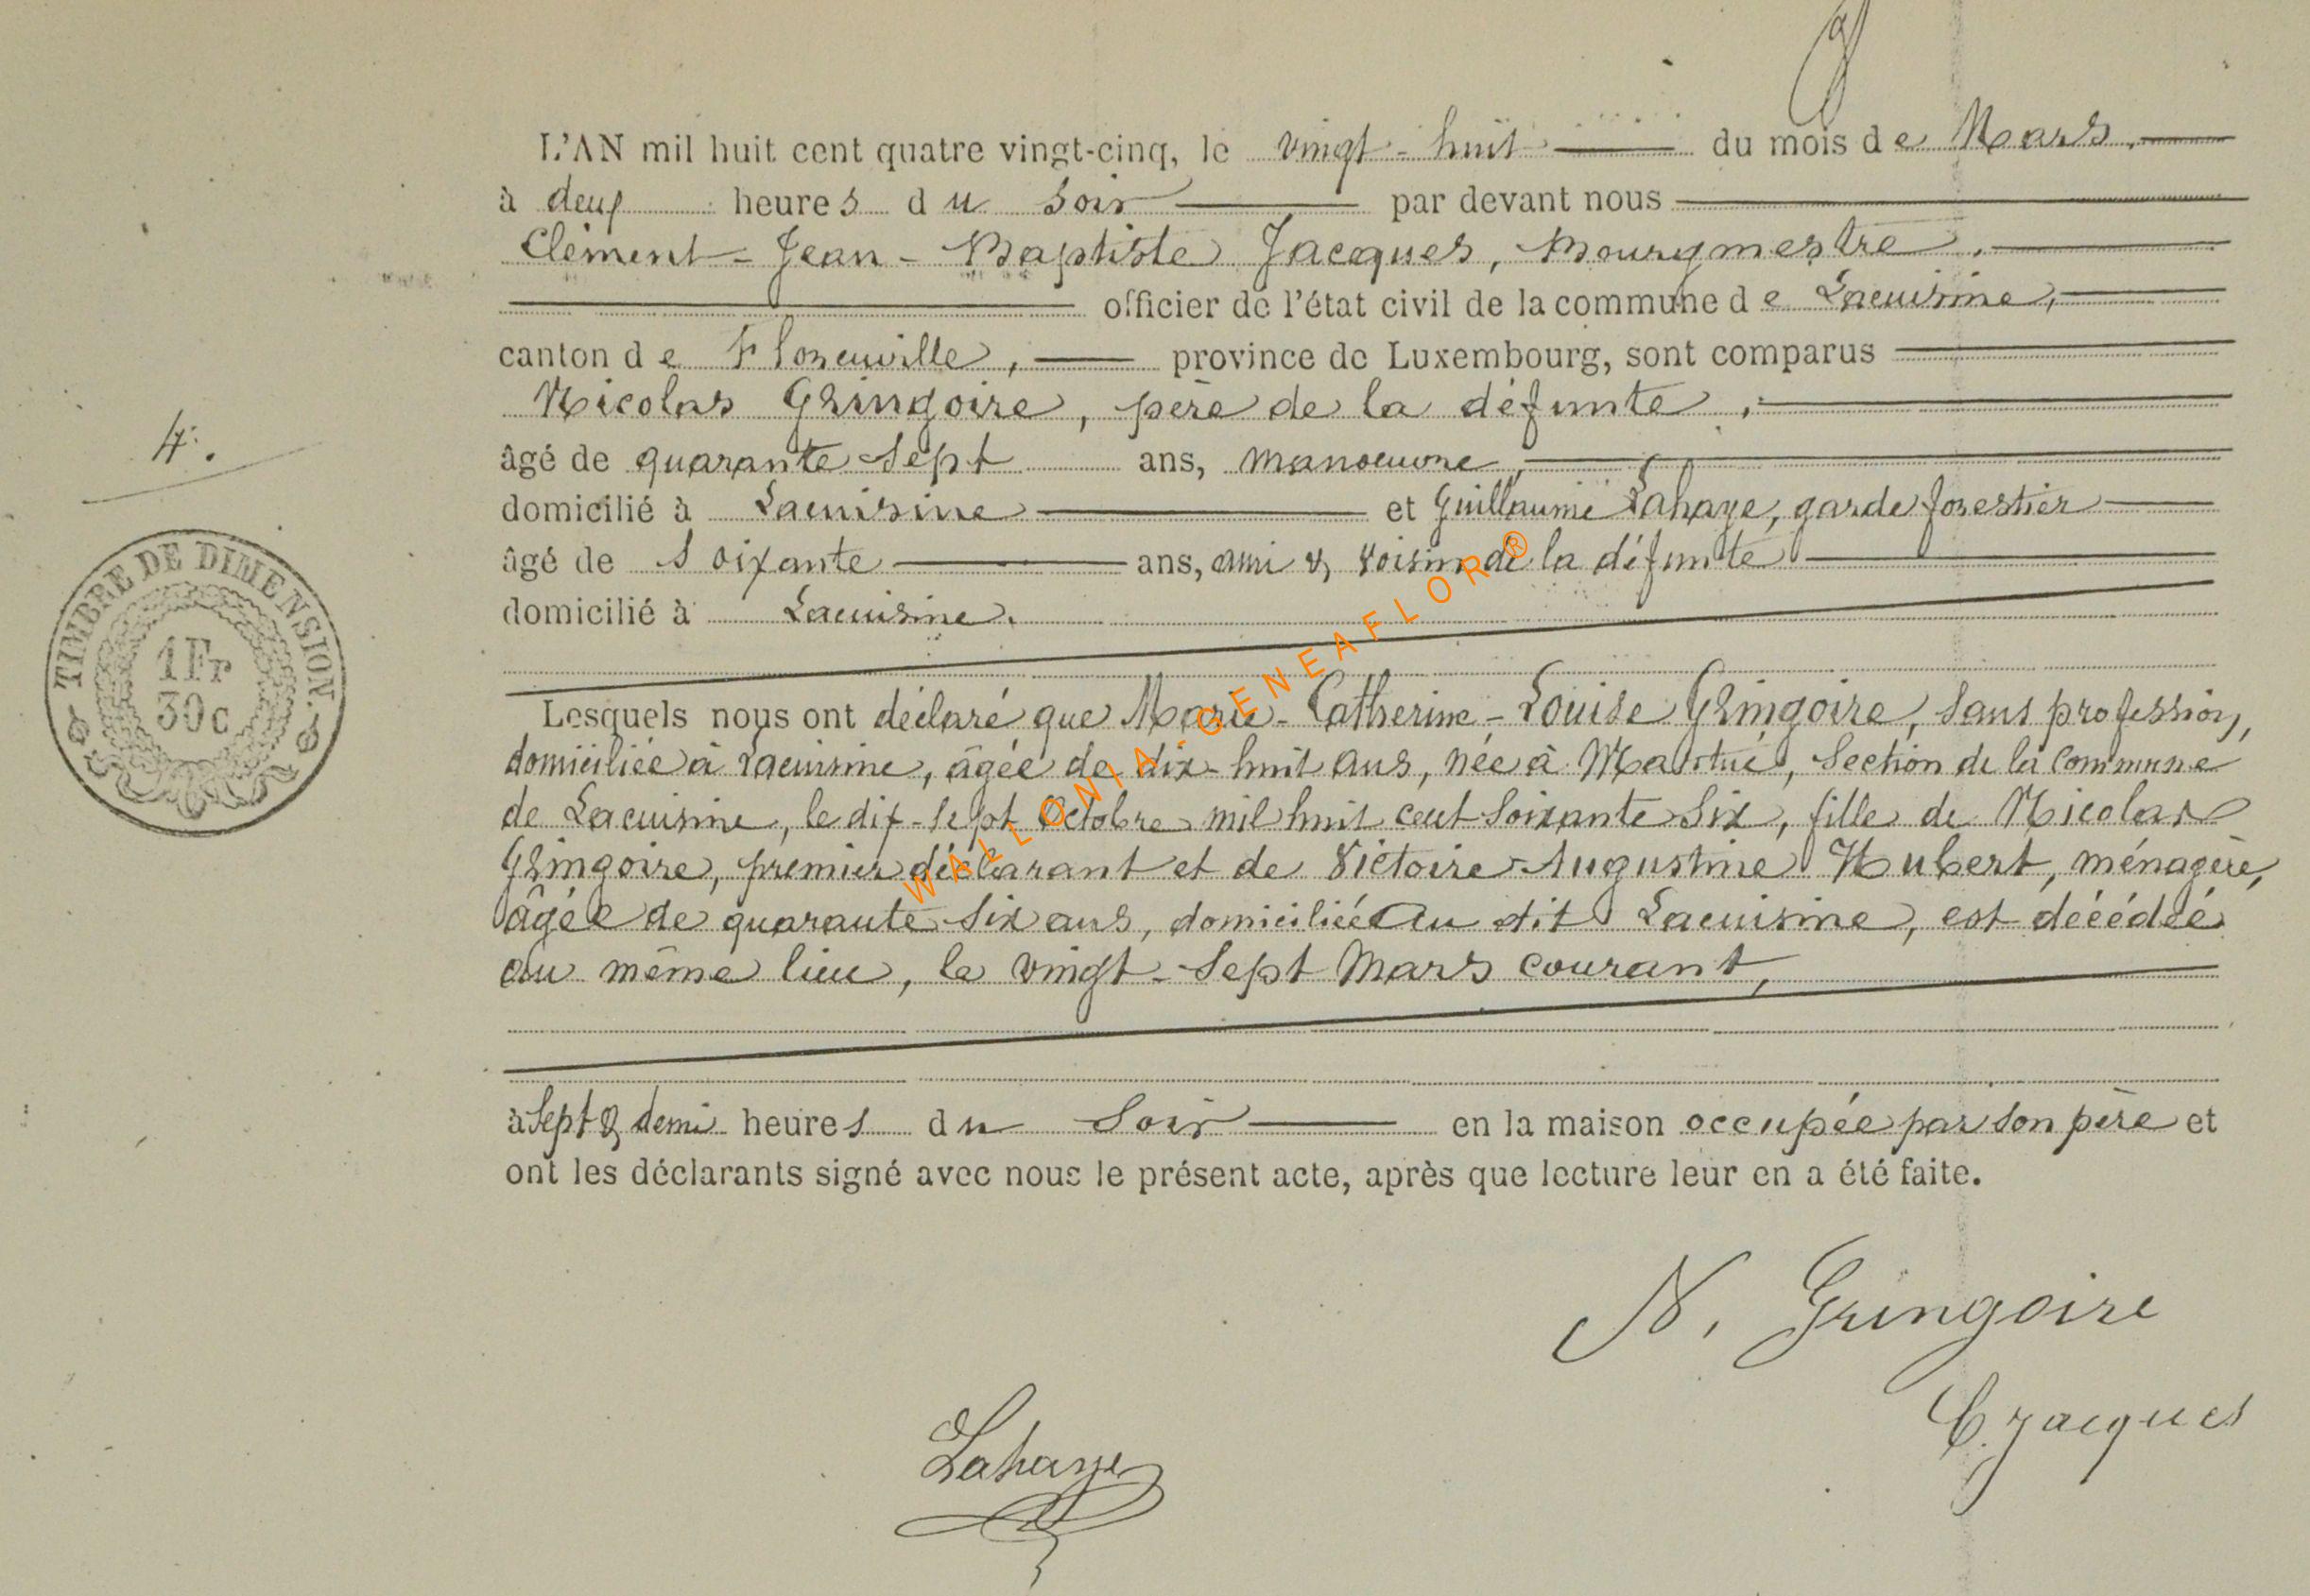 L'AN mil huit cent quatre vingt-cinq, le vingt-huit du mois de Mars.
à deux heures du soir par devant nous
Clément-Jean-Baptiste Jacques, Bourgmestre,
officier de l'état civil de la commune de Lacuisine,
canton de Florenville, province de Luxembourg, sont comparus
Nicolas Gringoire, père de la défunte,
âgé de quarante sept ans, manoeuvre,
4.
domicilié à Lacuisine et Guillaume Lahaye, garde forestier
âgé de Soixante ans, ami & voisin de la défunte
domicilié à Lacuisine.
TIMBRE DE DIMENSION.
1Fr
30c
Lesquels nous ont déclaré que Marie-Catherine-Louise Gringoire, sans profession,
domiciliée à Lacuisine, âgée de dix-huit ans, née à Martué, Section de la Commune
de Lacuisine, le dix-sept Octobre mil huit cent soixante six, fille de Nicolas
Gringoire, premier déclarant et de Victoire-Augustine Hubert, ménagère,
âgée de quarante six ans, domiciliée au dit Lacuisine, est décédée
au même lieu, le vingt-sept Mars courant,
à sept & demi heures du soir en la maison occupée par son père et
ont les déclarants signé avec nous le présent acte, après que lecture leur en a été faite.
N. Gringoire
C. Jacques
Lahaye
WALLONIA-GENEAFLOR®